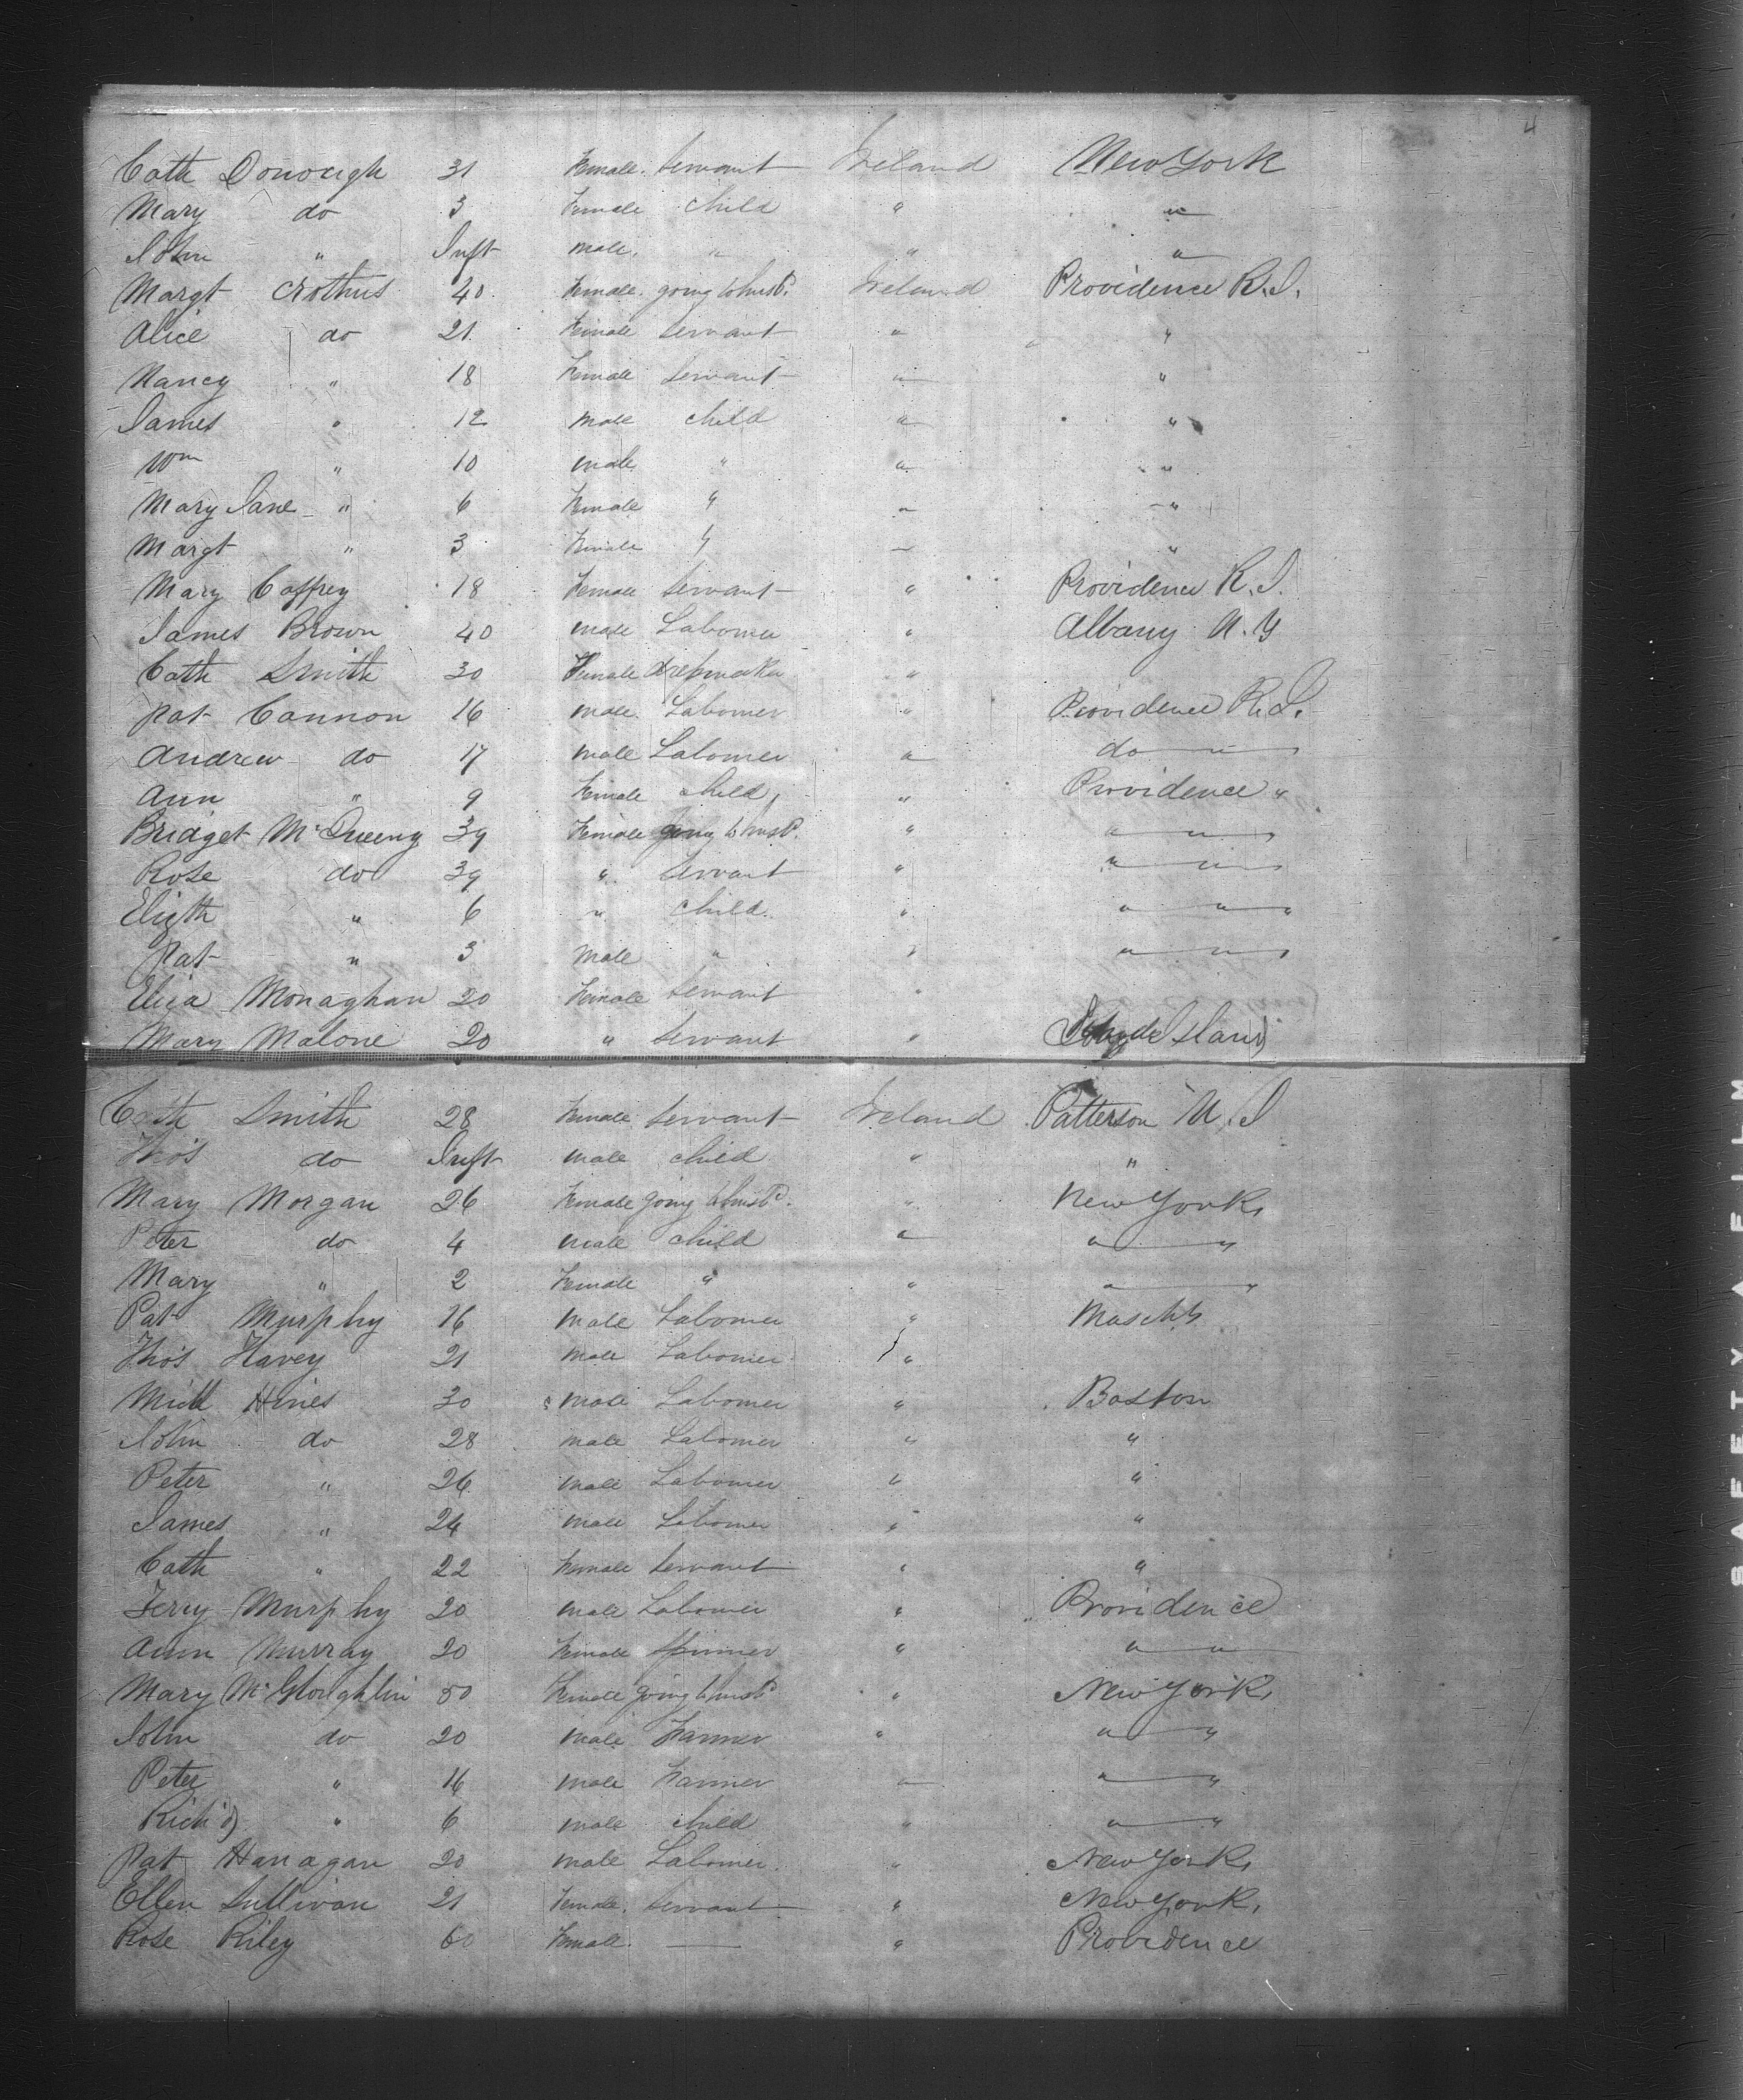 4
Cath Donough 31 Female. Servant Ireland New York
Mary do 3 Female child " "
John " Inft male. " " "
Margt Crothus 40. Female. going to husbd. Ireland Providence R.I.
Alice do 21. Female Servant " "
Nancy " 18 Female Servant " "
James " 12 male child " "
Wm " 10 male " " "
Mary Jane " 6 Female " " "
Margt " 3 Female " " "
Mary Caffrey 18 Female Servant " Providence R.I.
James Brown 40 male Labourer " Albany N.Y
Cath Smith 30 Female dressmaker "
Pat Cannon 16 male. Labourer " Providence R.I.
Andrew do 17 male Labourer " do "
Ann " 9 Female child " Providence "
Bridget McQueeny 39 Female going to husbd. " " " "
Rose do 39 " Servant " " " "
Elizth " 6 " child. " " " "
Pat " 3 Male " " " " "
Eliza Monaghan 20 Female Servant "
Mary Malone 20 " Servant " Island
Cath Smith 28 Female Servant Ireland Patterson N.J
Thos do Inft male child " "
Mary Morgan 26 Female going to husbd. " New York,
Peter do 4 male child " " "
Mary " 2 Female " " " "
Pat Murphy 16 male Labourer " Maschts
Thos Havey 21 male Labourer "
Michl Hines 30 male Labourer " Boston
John do 28 male Labourer " "
Peter " 26 male Labourer " "
James " 24 male Labourer " "
Cath " 22 Female Servant " "
Terry Murphy 20 male Labourer " Providence
Ann Murray 20 Female Spinner " " "
Mary McGloughlin 50 Female going to husbd " New York,
John do 20 male Farmer " " "
Peter " 16 male Farmer " " "
Richd " 6 male child " " "
Pat Hanagan 20 male Labourer. " New York,
Ellen Sullivan 21 Female. Servant " New York,
Rose Riley 60 Female. — " Providence
SAFETY FILM